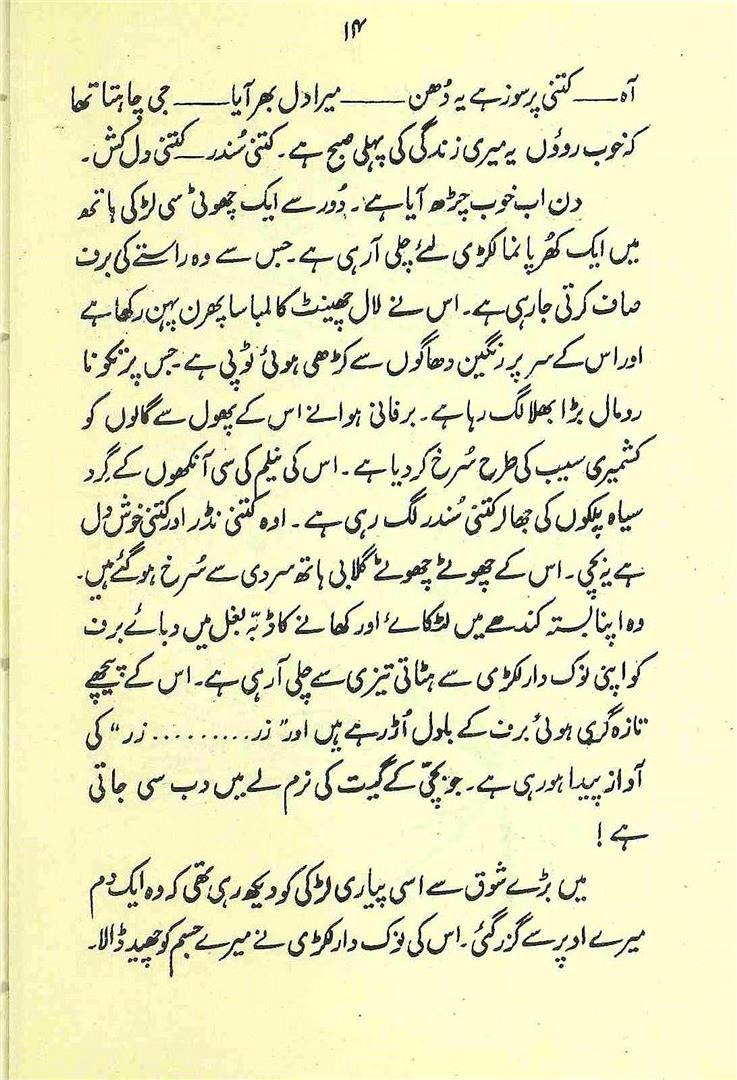 ۱۴
آہ ــــ کتنی پرسوز ہے یہ دُھن ــــــ میرا دل بھر آیا ــــــ جی چاہتا تھا
کہ خوب روؤں یہ میری زندگی کی پہلی صبح ہے۔ کتنی سُندر ــ کتنی دل کش۔
دن اب خوب چڑھ آیا ہے۔ دُور سے ایک چھوٹی سی لڑکی ہاتھ
میں ایک کھُرپا نما لکڑی لئے چلی آرہی ہے۔ جس سے وہ راستے کی برف
صاف کرتی جارہی ہے۔ اس نے لال چھینٹ کا لمبا سا پھرن پہن رکھا ہے
اور اس کے سر پر رنگین دھاگوں سے کڑھی ہوئی ٹوپی ہے۔ جس پر تکونا
رومال بڑا بھلا لگ رہا ہے۔ برفانی ہوا نے اس کے پھول سے گالوں کو
کشمیری سیب کی طرح سُرخ کر دیا ہے۔ اس کی نیلم کی سی آنکھوں کے گِرد
سیاہ پلکوں کی جھالر کتنی سُندر لگ رہی ہے۔ اوہ کتنی نڈر اور کتنی خوش دل
ہے یہ بچی۔ اس کے چھوٹے چھوٹے گلابی ہاتھ سردی سے سُرخ ہو گئے ہیں۔
وہ اپنا بستہ کندھے میں لٹکائے اور کھانے کا ڈبّہ بغل میں دبائے برف
کو اپنی نوک دار لکڑی سے ہٹاتی تیزی سے چلی آرہی ہے۔ اس کے پیچھے
تازہ گری ہوئی برف کے بادل اُڑ رہے ہیں اور "زر.........زر" کی
آواز پیدا ہورہی ہے۔ جو بچیّ کے گیت کی نرم لے میں دب سی جاتی
ہے!
میں بڑے شوق سے اسی پیاری لڑکی کو دیکھ رہی تھی کہ وہ ایک دم
میرے اوپر سے گزر گئی۔ اس کی نوک دار لکڑی نے میرے جسم کو چھید ڈالا۔